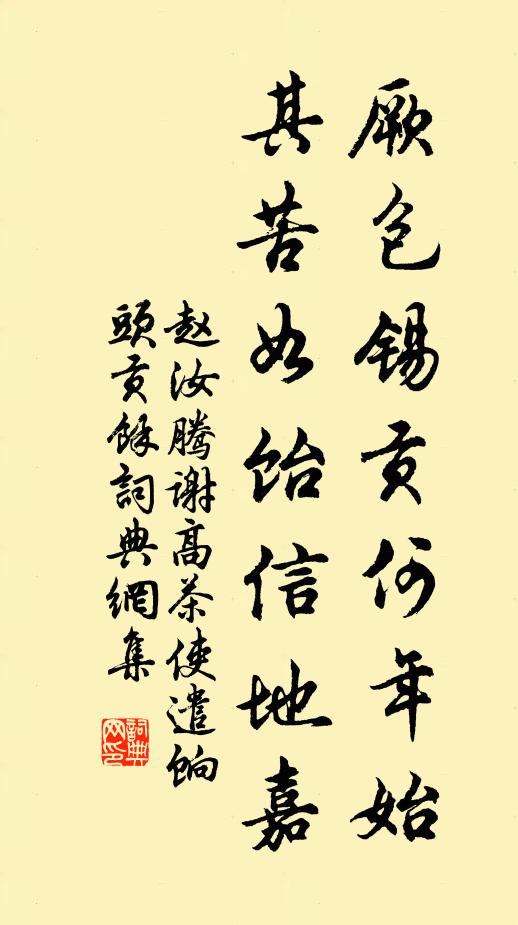 厥包锡贡何年始
其苦如饴信地嘉
赵汝腾谢高茶使遣饷
头贡馀词典網集
詞典
网印